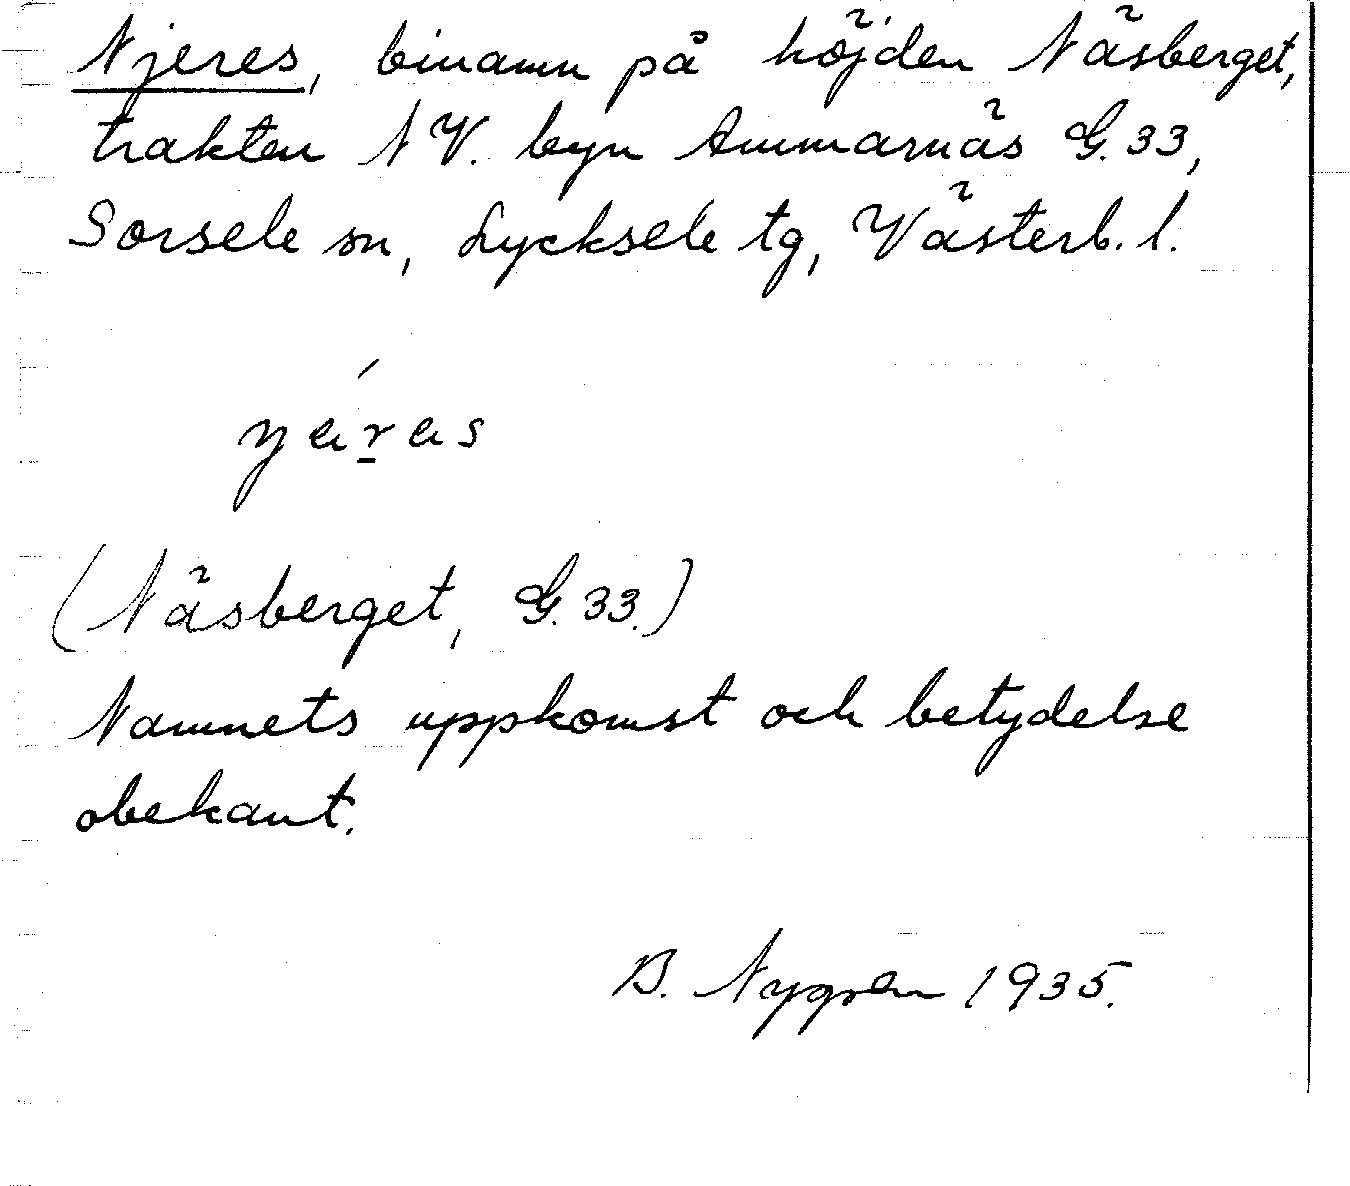 Njeres, binamn på höjden Näsberget,
trakten NV. byn Ammarnäs G. 33,
Sorsele sn, Lycksele tg, Västerb. l.
(Näsberget, G. 33.)
Namnets uppkomst och betydelse
obekant.
B. Nygren 1935.